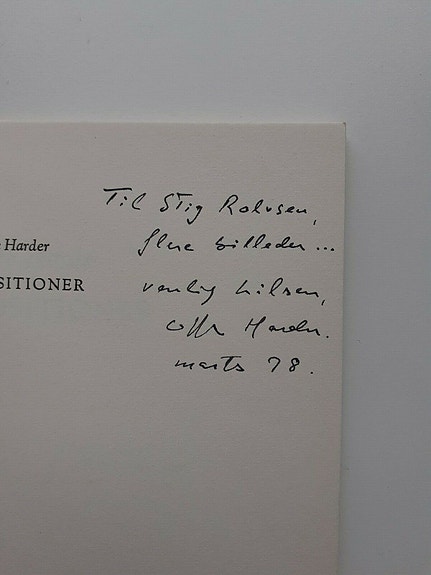 Til Stig Rolvsen,
Harder
flere billeder...
SITIONER
venlig hilsen,
Uffe Harder.
marts 78.